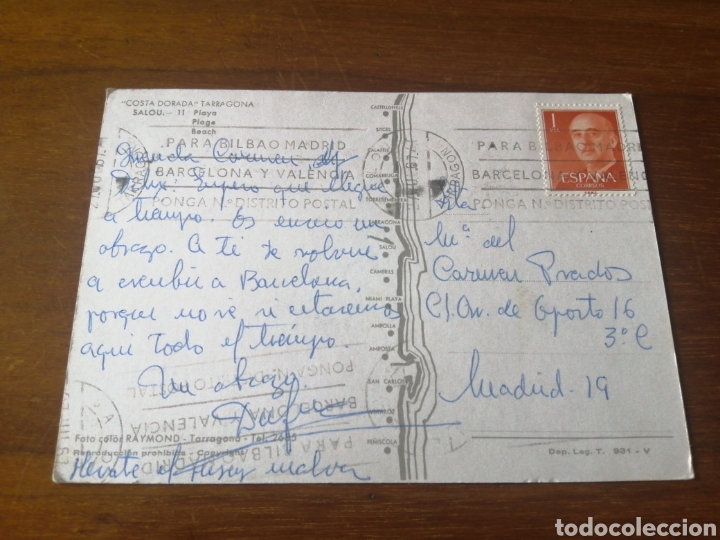 "COSTA DORADA" TARRAGONA
SALOU. - 11 Playa
Plage
Beach
PARA BILBAO MADRID
BARCELONA Y VALENCIA
PONGA N.º DISTRITO POSTAL
Carmen
Espero que llegue
a tiempo. Os envio un
abrazo. A ti te volveré
a escribir a Barcelona,
porque no sé si estaremos
aqui todo el tiempo.
Un abrazo.
Foto color RAYMOND - Tarragona - Tel.
Reproducción prohibida - Copyright
CASTELLDEFELS
SITGES
CALAFELL
COMARRUGA
TORREDEMBARRA
TARRAGONA
SALOU
CAMBRILS
MIAMI PLAYA
AMPOLLA
AMPOSTA
SAN CARLOS
PEÑISCOLA
PARA BILBAO MADRID
BARCELONA Y VALENCIA
PONGA N.º DISTRITO POSTAL
TARRAGONA
1
ESPAÑA
CORREOS
Srta
Mª del
Carmen Prados
C/. Av. de Oporto 16
3º C
Madrid-19
PONGA N.º DISTRITO POSTAL
BARCELONA Y VALENCIA
PARA BILBAO MADRID
Dep. Leg. T. 931 - V
todocoleccion